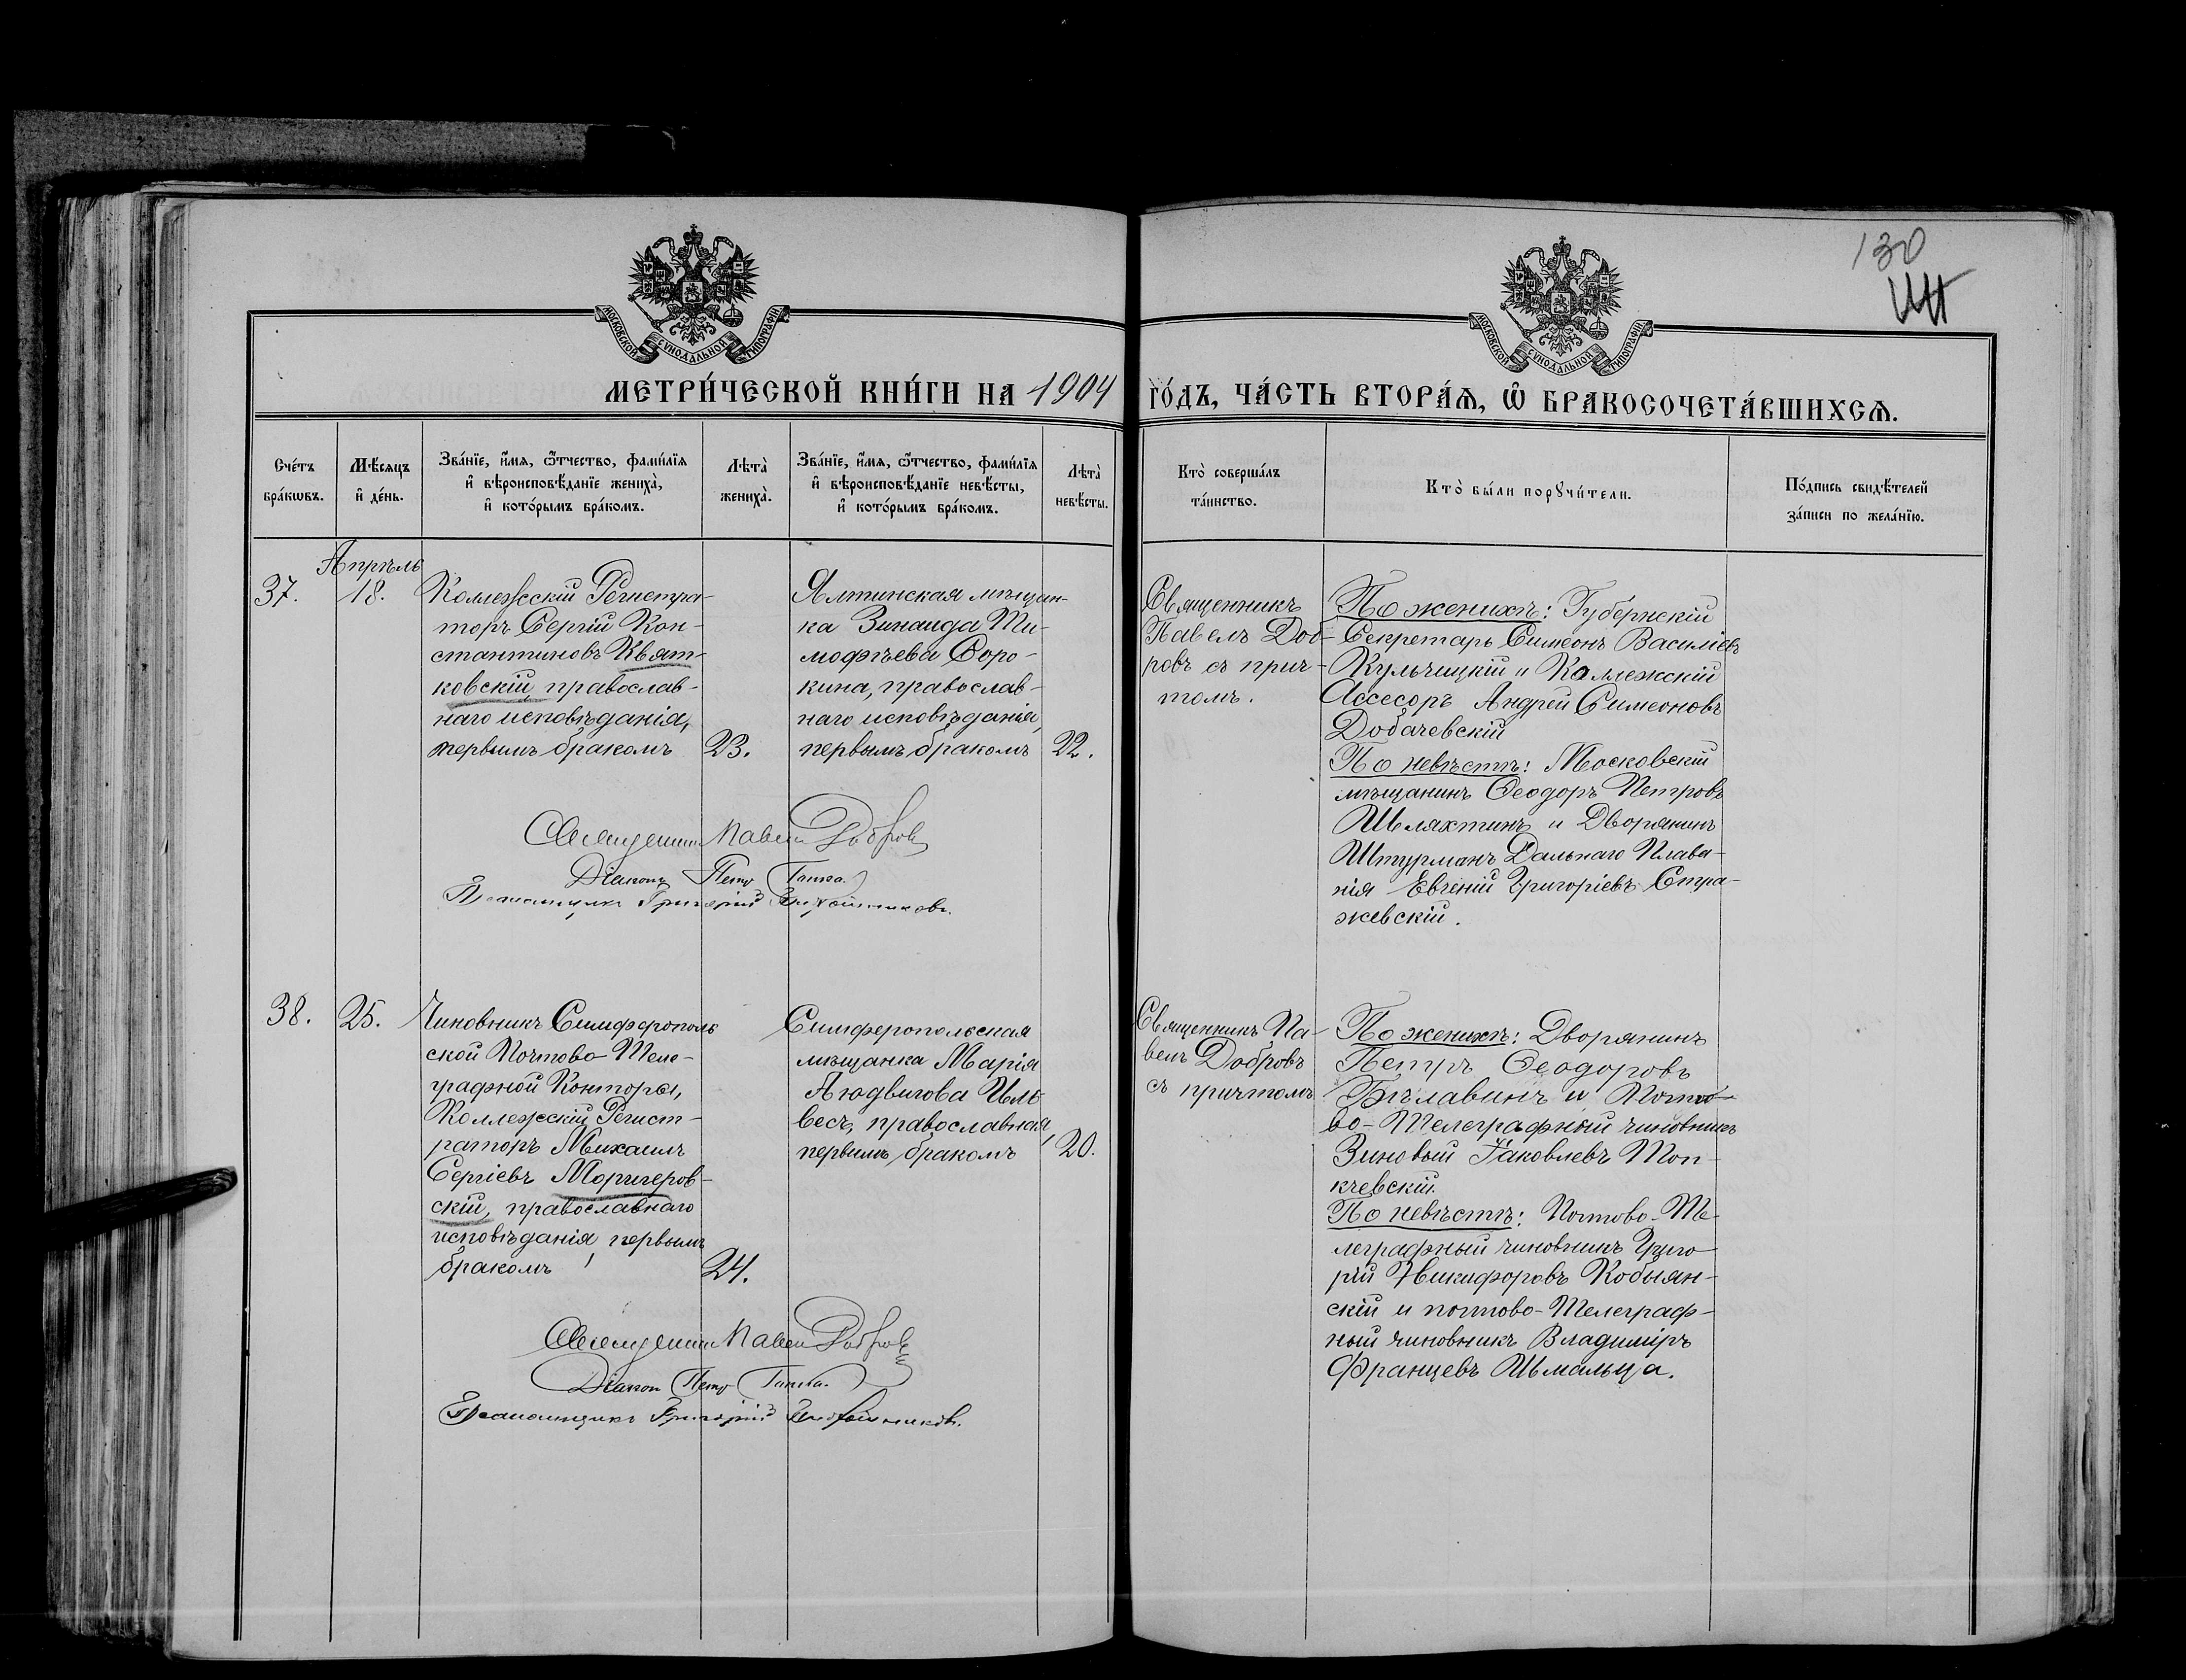 130
МОСКОВСКОЙ СѴНОДАЛЬНОЙ ТИПОГРАФІИ
МОСКОВСКОЙ СѴНОДАЛЬНОЙ ТИПОГРАФІИ
МЕТРИ́ЧЕСКОЙ КНИ́ГИ НА 1904 ГО́ДЪ, ЧА́СТЬ ВТОРА́Ѧ, Ѽ БРАКОСОЧЕТА́ВШИХСѦ.
Сче́тъ
бра́кѡвъ.
Мѣ́сяцъ
и҆ де́нь.
Зва́нїе, и҆́мя, ѻ҆́тчество, фами́лїя
и҆ вѣроисповѣ́данїе жениха̀,
и҆ кото́рымъ бра́комъ.
Лѣта̀
жениха̀.
Зва́нїе, и҆́мя, ѻ҆́тчество, фами́лїя
и҆ вѣроисповѣ́данїе невѣ́сты,
и҆ кото́рымъ бра́комъ.
Лѣта̀
невѣ́сты.
Кто̀ соверша́лъ
та́инство.
Кто̀ бы́ли порꙋчи́тели.
По́дпись свидѣ́телей
за́писи по жела́нїю.
37.
Апрѣль
18.
Коллежскій Регистра-
торъ Сергій Кон-
стантиновъ Квят-
ковскій православ-
наго исповѣданія,
первымъ бракомъ
23.
Ялтинская мѣщан-
ка Зинаида Ти-
мофѣева Соро-
кина, православ-
наго исповѣданія,
первымъ бракомъ
22.
Священникъ
Павелъ Доб-
ровъ съ прич-
томъ.
По женихѣ: Губернскій
Секретарь Симеонъ Василіевъ
Кульчицкій и Коллежскій
Ассесоръ Андрей Симеоновъ
Добачевскій
По невѣстѣ: Московскій
мѣщанинъ Ѳеодоръ Петровъ
Шляхтинъ и Дворянинъ
Штурманъ Дальнаго Плава-
нія Евгеній Григоріевъ Стра-
жевскій.
Священникъ Павелъ Добровъ
Діаконъ Петръ
Псаломщикъ Григорій
38.
25.
Чиновникъ Симферополь
ской Почтово-Теле-
графной Конторы,
Коллежскій Регист-
раторъ Михаилъ
Сергіевъ Моригеров-
скій, православнаго
исповѣданія, первымъ
бракомъ
24.
Симферопольская
мѣщанка Марія
Людвигова Иль
весъ, православная,
первымъ бракомъ
20.
Священникъ Па-
велъ Добровъ
съ причтомъ
По женихѣ: Дворянинъ
Петръ Ѳеодоровъ
Бѣлавинъ и Почто-
во-Телеграфный чиновникъ
Зиновій Іаковлевъ Топ-
кчевскій.
По невѣстѣ: Почтово-Те-
леграфный чиновникъ Григо-
рій Никифоровъ Кобылян-
скій и почтово-Телеграф-
ный чиновникъ Владиміръ
Францевъ Шмальца.
Священникъ Павелъ Добровъ
Діаконъ Петръ
Псаломщикъ Григорій